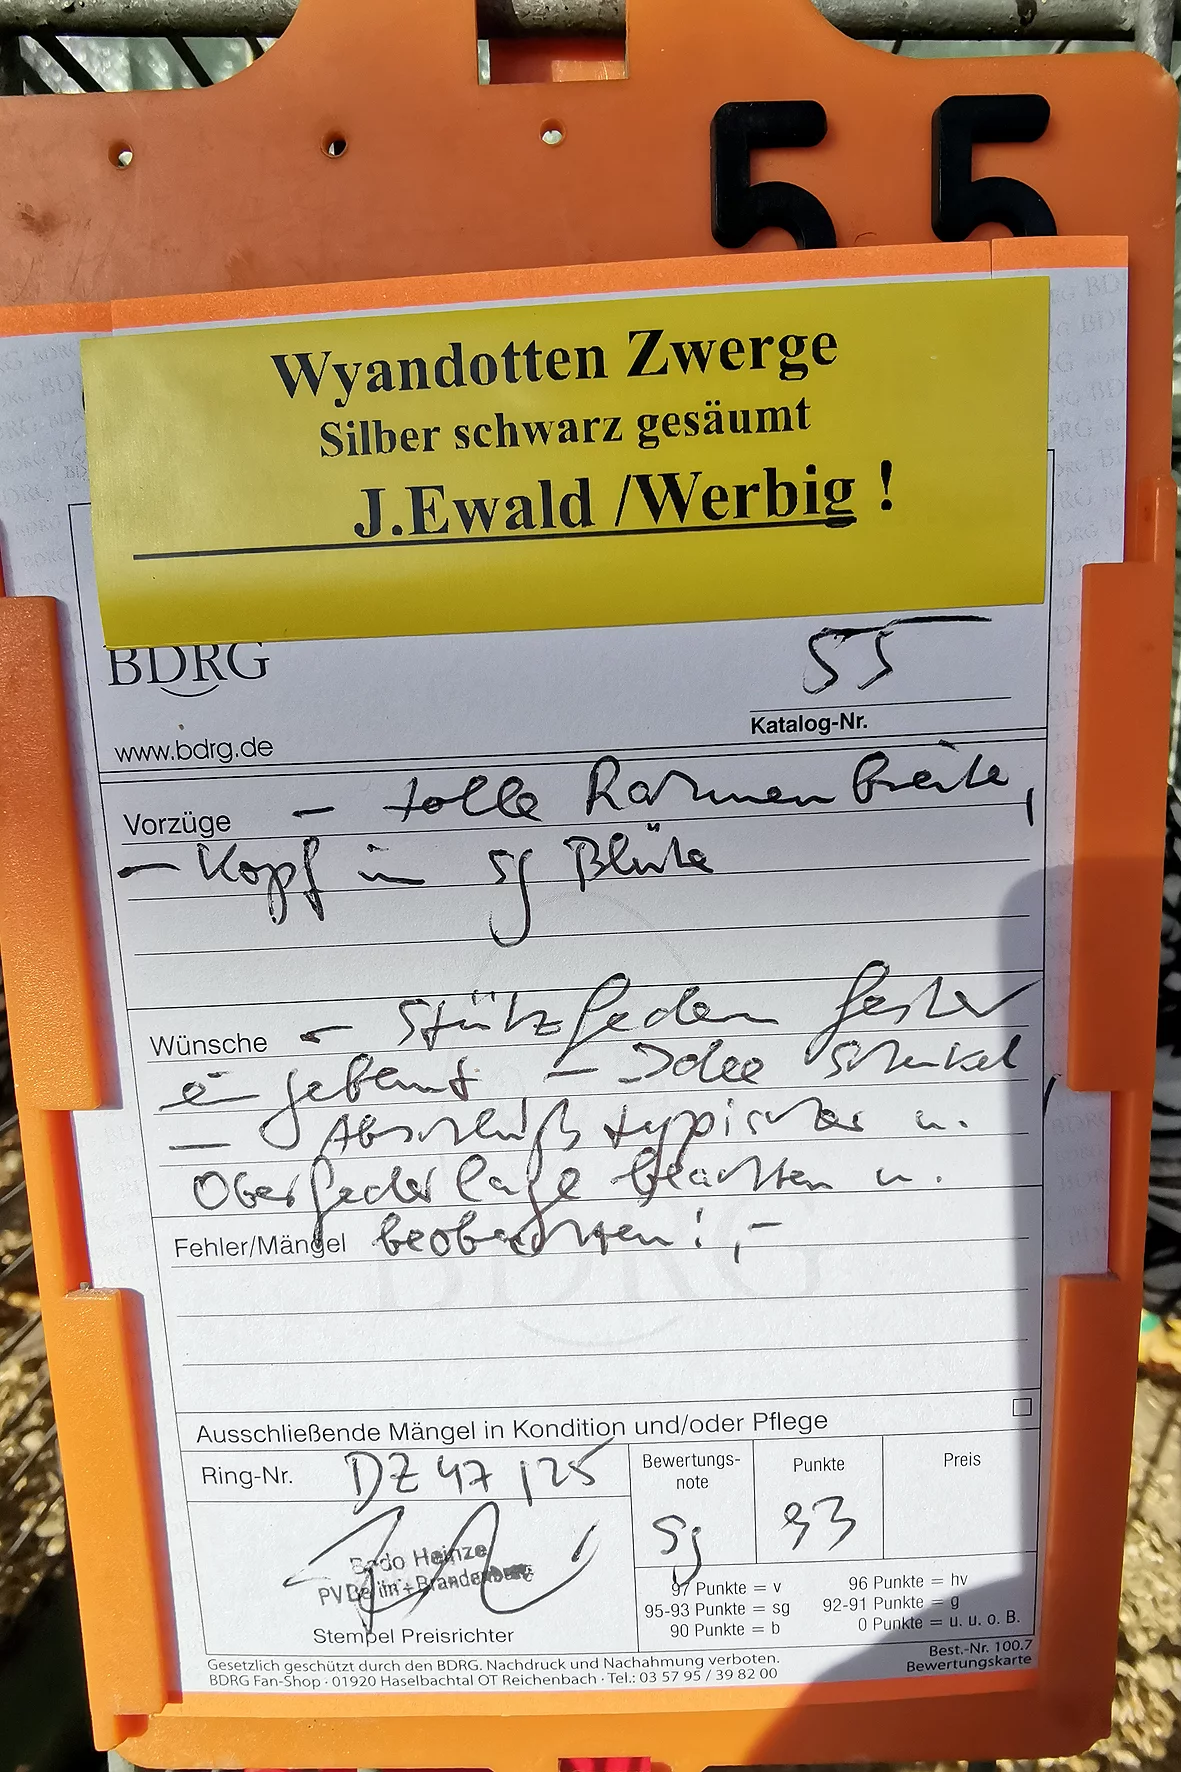 55
Wyandotten Zwerge
Silber schwarz gesäumt
J.Ewald /Werbig !
BDRG
55
Katalog-Nr.
www.bdrg.de
Vorzüge - tolle Rahmenbreite,
- Kopf in sg Blüte
Wünsche - Stützfedern fester
eingebaut - Idee Schenkel,
- Abschluß typischer u.
Oberfederlage beachten u.
Fehler/Mängel beobachten!,-
BDRG
Ausschließende Mängel in Kondition und/oder Pflege
Ring-Nr. DZ 47 / 25
Bewertungs-
note
sg
Punkte
93
Preis
Bodo Heinze
PV Berlin-Brandenburg
Stempel Preisrichter
97 Punkte = v 96 Punkte = hv
95-93 Punkte = sg 92-91 Punkte = g
90 Punkte = b 0 Punkte = u. u. o. B.
Gesetzlich geschützt durch den BDRG. Nachdruck und Nachahmung verboten.
BDRG Fan-Shop · 01920 Haselbachtal OT Reichenbach · Tel.: 03 57 95 / 39 82 00
Best.-Nr. 100.7
Bewertungskarte